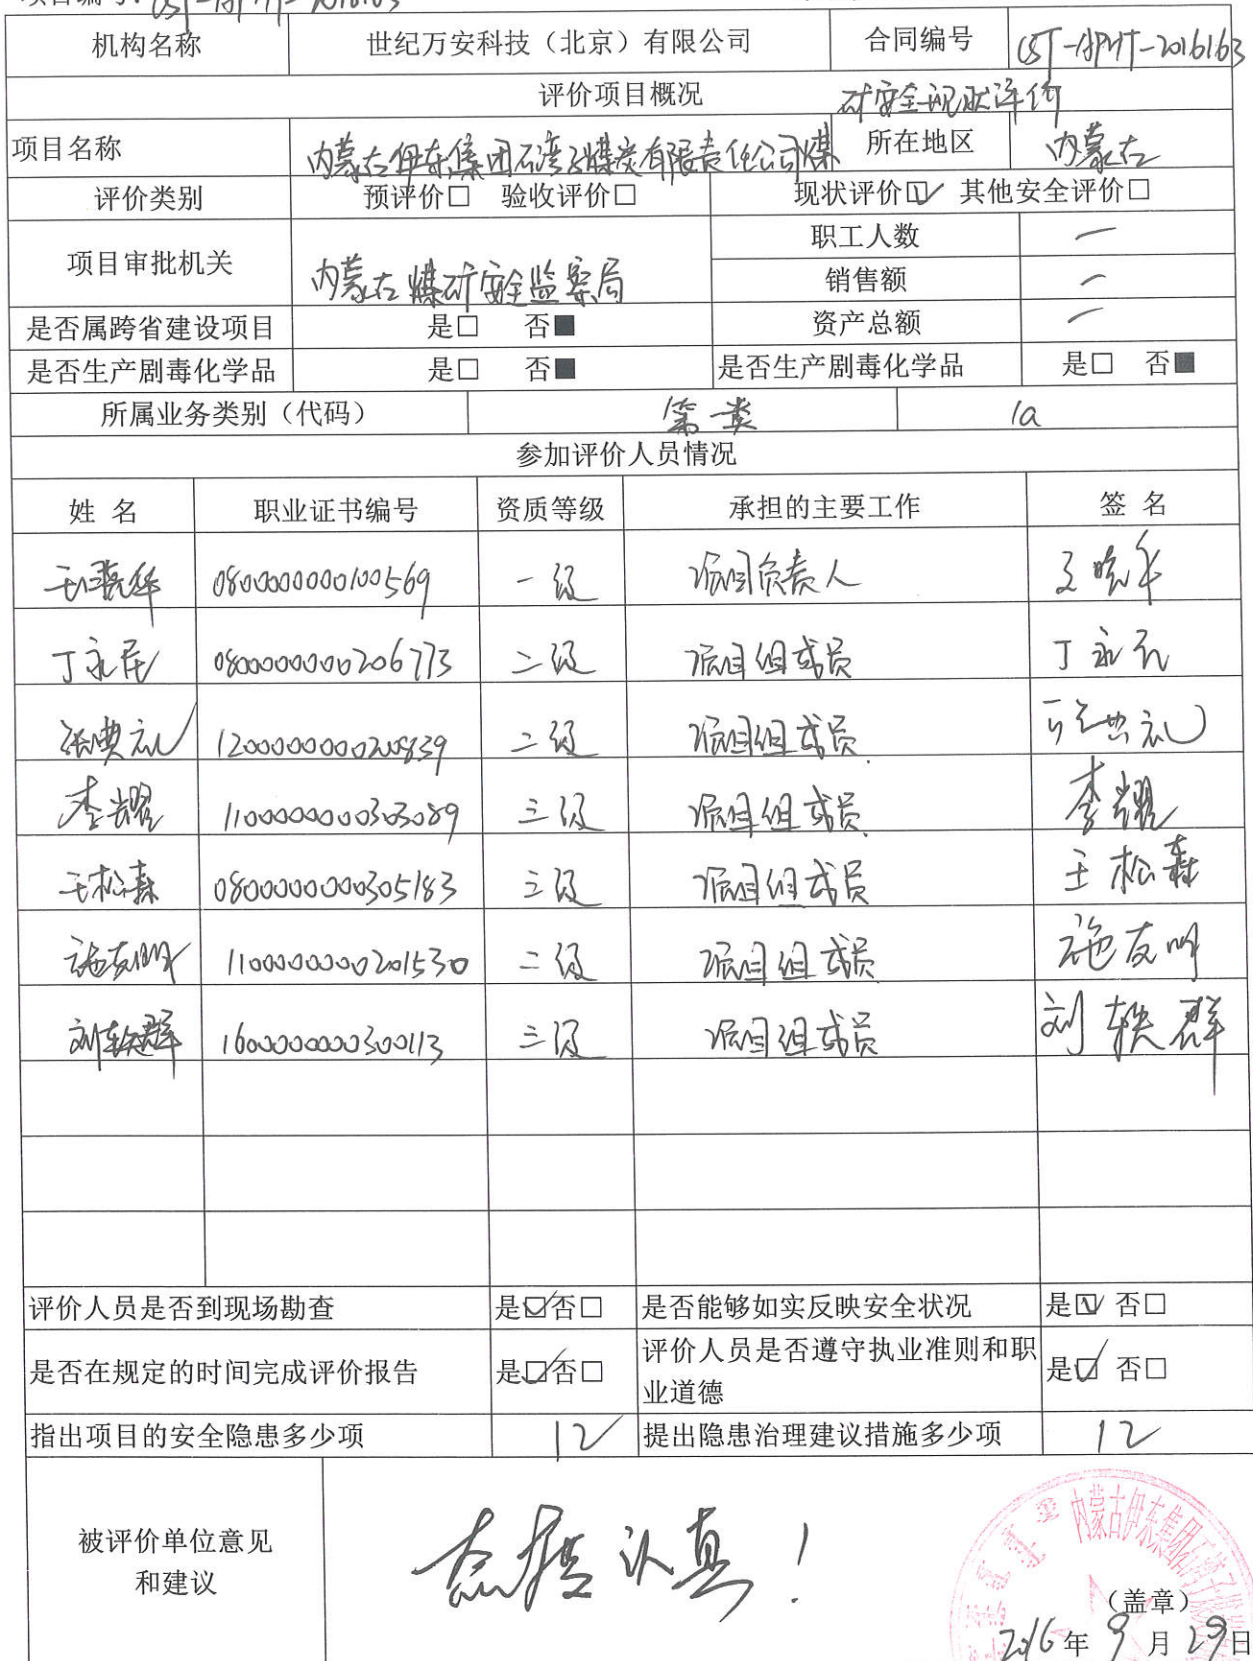 机构名称 世纪万安科技（北京）有限公司 合同编号 CST-APMT-2016163
评价项目概况
矿安全现状评价
项目名称 内蒙古伊东集团石湾子煤炭有限责任公司煤 所在地区 内蒙古
评价类别 预评价□ 验收评价□ 现状评价☑ 其他安全评价□
项目审批机关 内蒙古煤矿安全监察局 职工人数 一
销售额 一
是否属跨省建设项目 是□ 否■ 资产总额 一
是否生产剧毒化学品 是□ 否■ 是否生产剧毒化学品 是□ 否■
所属业务类别（代码） 第一类 1a
参加评价人员情况
姓 名 职业证书编号 资质等级 承担的主要工作 签 名
王晓华 0800000000100569 一级 项目负责人 王晓华
丁永 0800000000206773 二级 项目组成员 丁永
张典礼 1200000000200839 二级 项目组成员 张典礼
李耀 1100000000303089 三级 项目组成员 李耀
王松森 0800000000305183 三级 项目组成员 王松森
施友明 1100000000201530 二级 项目组成员 施友明
刘轶群 1600000000300113 三级 项目组成员 刘轶群
评价人员是否到现场勘查 是☑否□ 是否能够如实反映安全状况 是☑ 否□
是否在规定的时间完成评价报告 是☑否□ 评价人员是否遵守执业准则和职
业道德 是☑ 否□
指出项目的安全隐患多少项 12 提出隐患治理建议措施多少项 12
被评价单位意见
和建议
态度认真！
内蒙古伊东集团石湾子煤
（盖章）
2016年9月29日